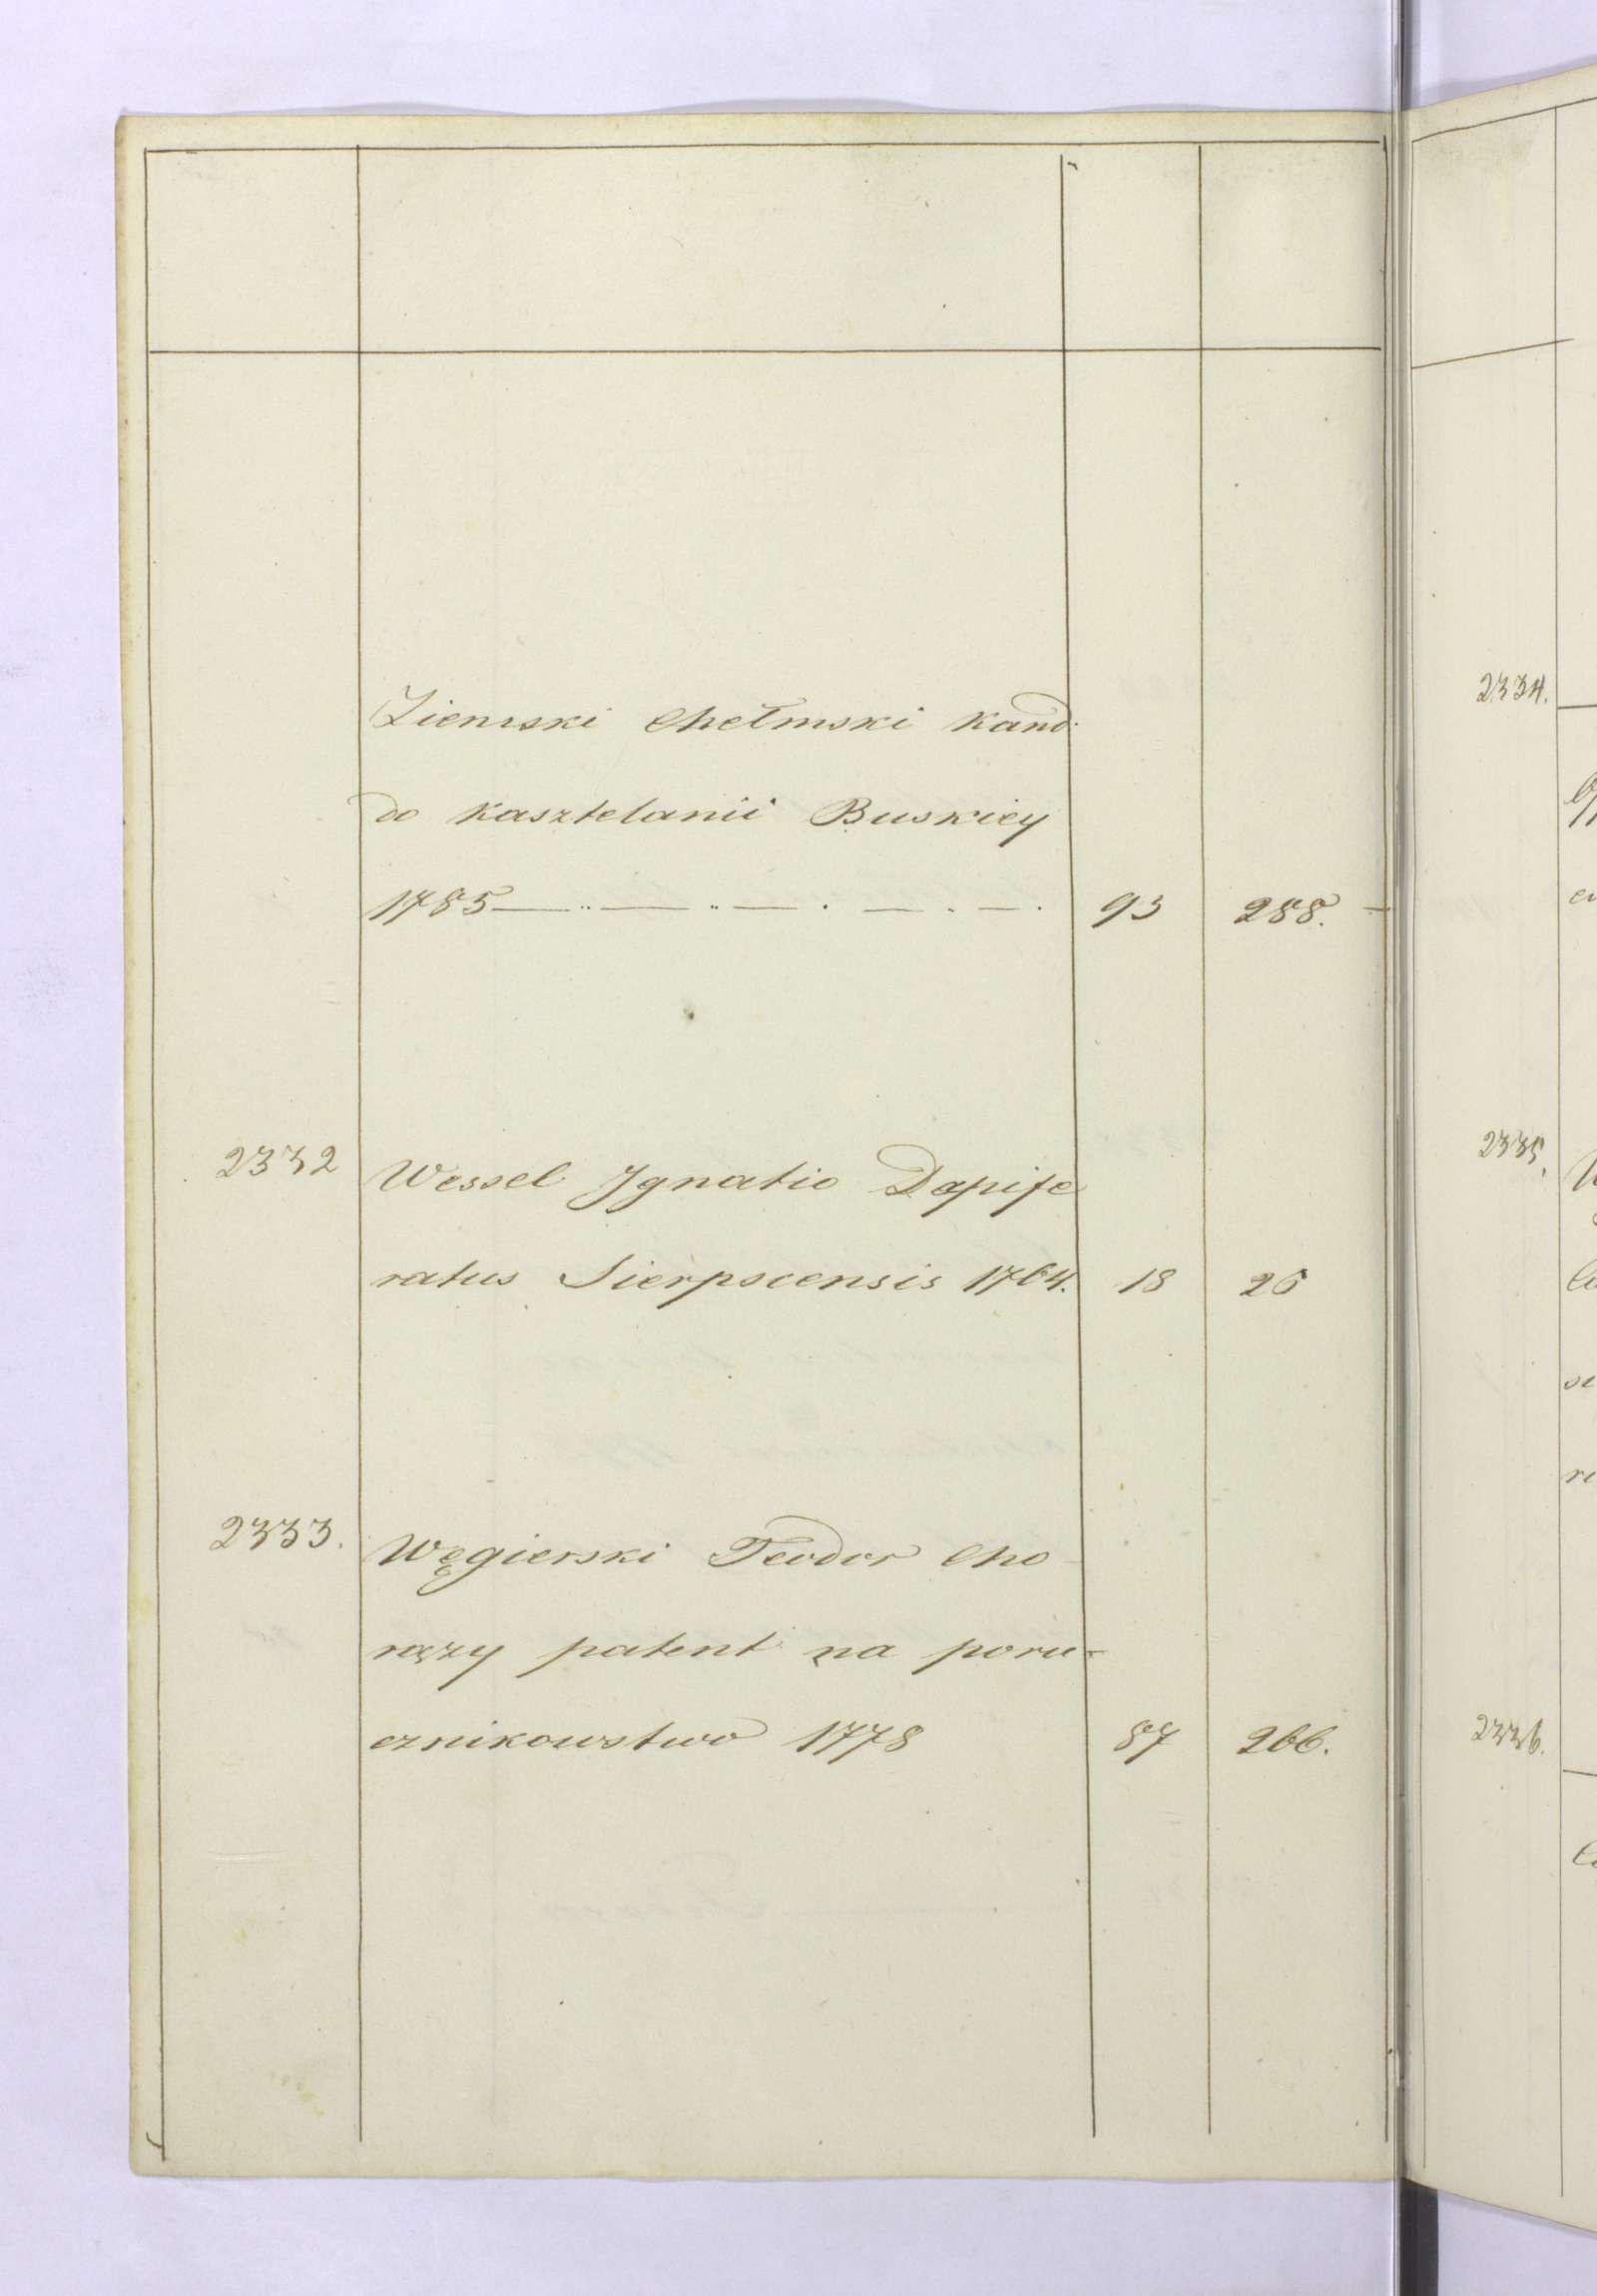 Ziemski Chełmski Kand:
do Kasztelanii Buskiey
1785 — .. — .. — . — . — . 93 288.
2332 Wessel Jgnatio Dapife
ratus Sierpscensis 1764. 18 26
2333. Węgierski Teodor Cho
rąży patent na poru-
cznikowstwo 1778 87 266.
2334.
2335.
2336.